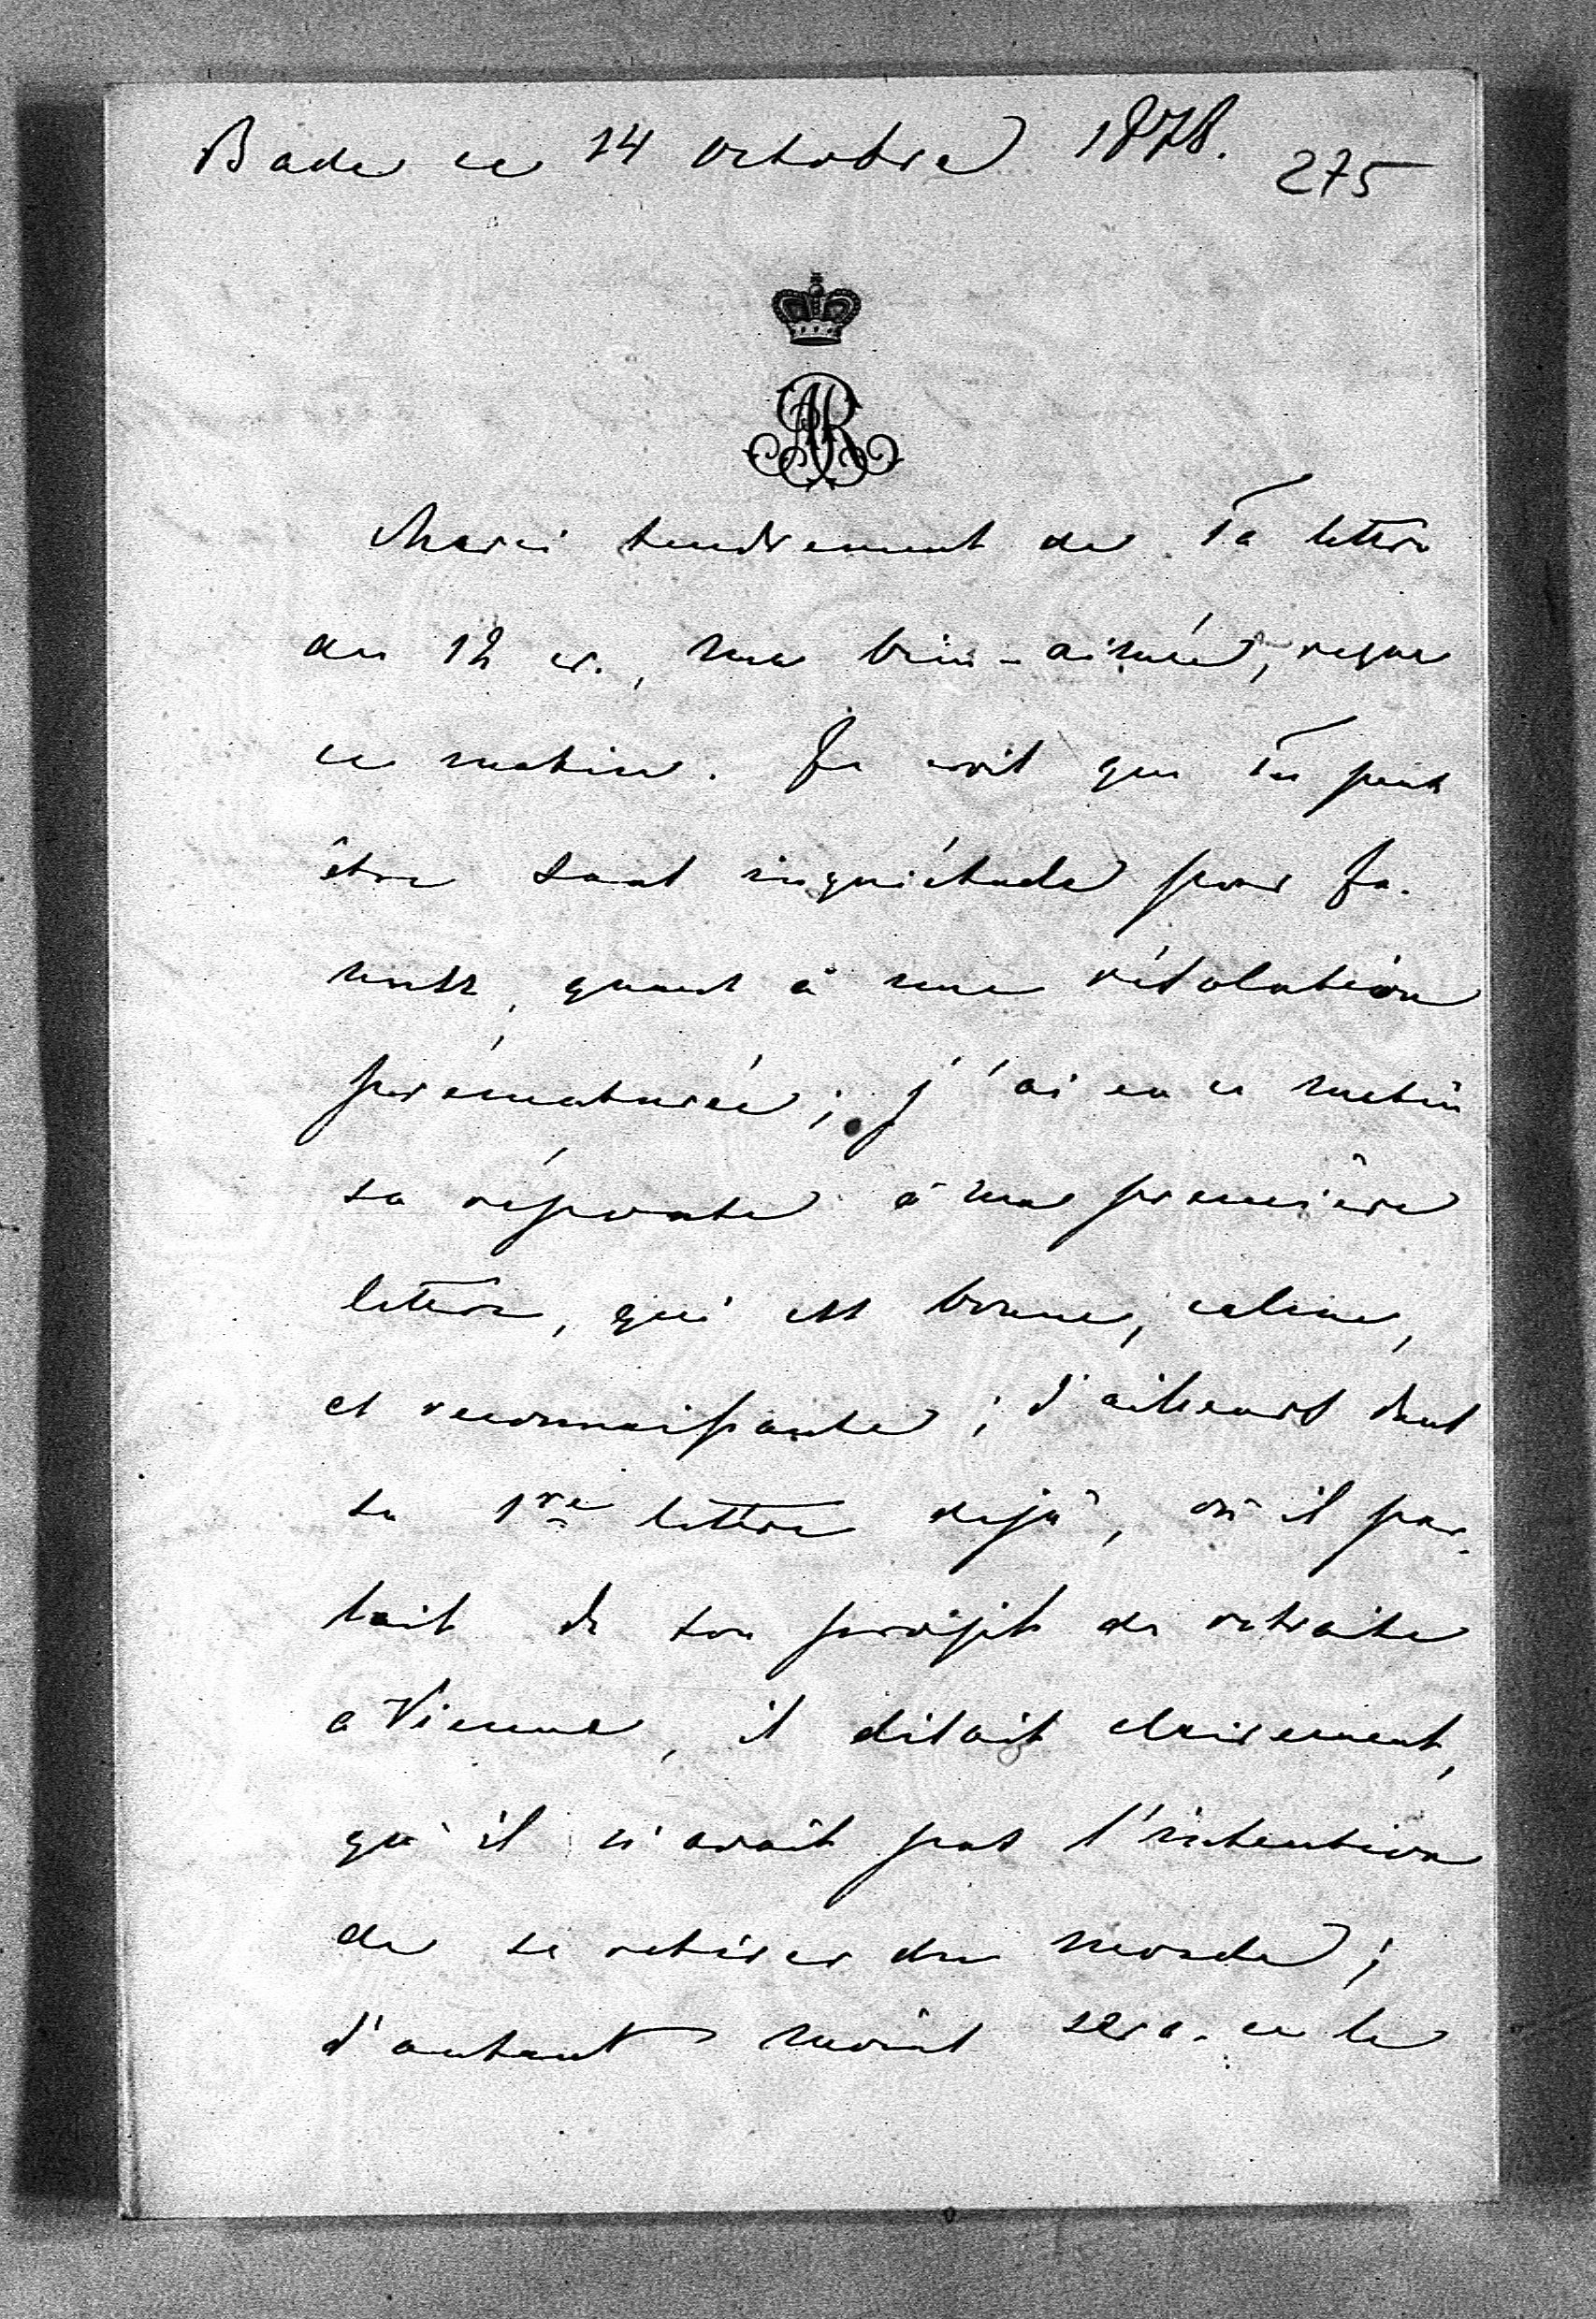 Bade ce 14 octobre 1878.
275
AR
Merci tendrement de Ta lettre
du 12 cr., ma bien-aimée, reçue
ce matin. Je crois que Tu peux
être sans inquiétude pour
quant à une résolution
prématurée; j'ai eu ce matin
sa réponse à ma première
lettre, qui est bonne, calme,
et reconnaissante; d'ailleurs dans
sa 1re lettre déjà, où il par-
lait de son projet de retraite
a Vienne, il disait clairement,
qu'il n'avait pas l'intention
de se retirer du monde;
d'autant moins sera-ce le